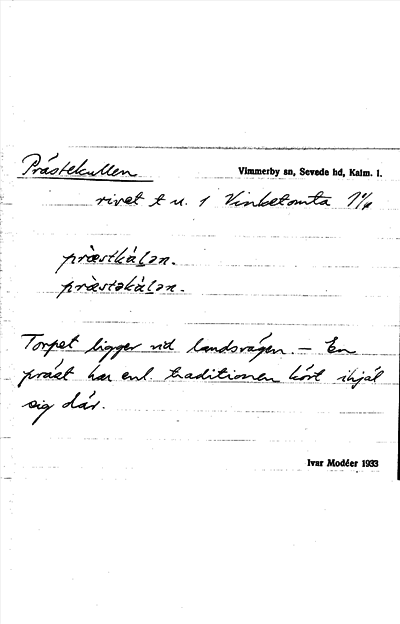 Prästekullen
Vimmerby sn, Sevede hd, Kalm. l.
rivet t u. 1 Vinketomta
præstkàlən.
præstəkàlən.
Torpet ligger vid landsvägen. – En
präst har enl. traditionen kört ihjäl
sig där.
Ivar Modéer 1933